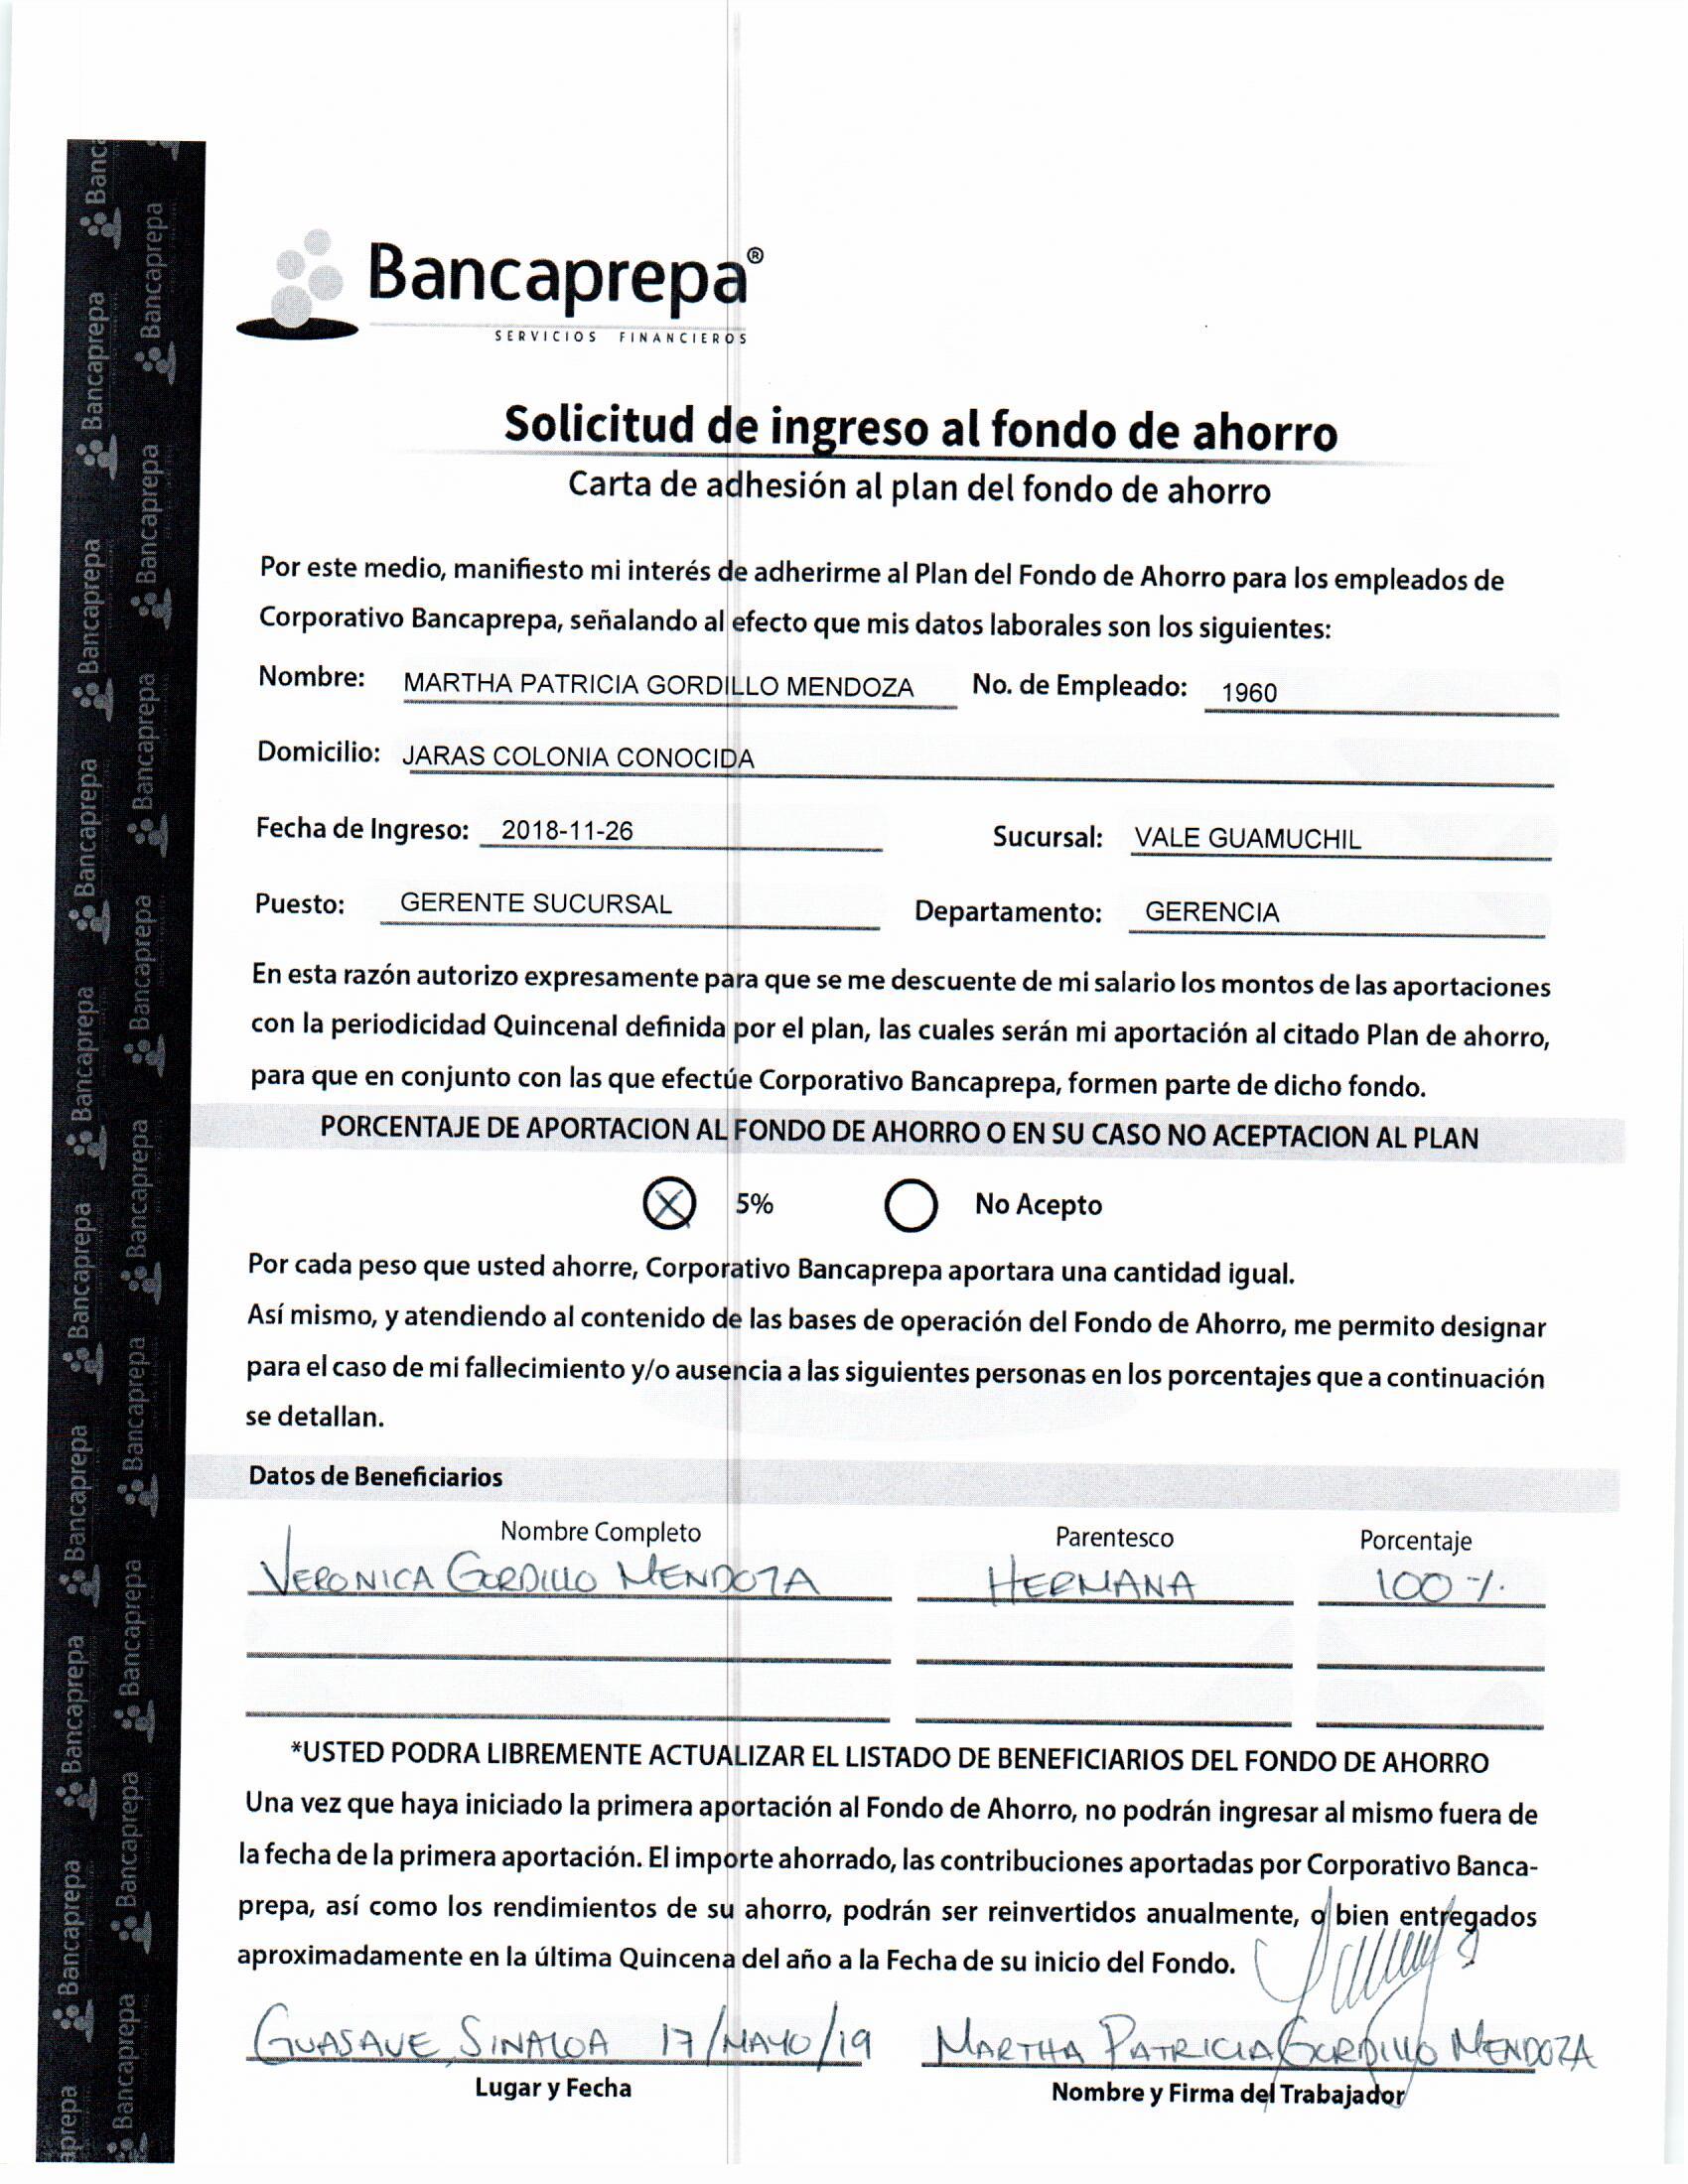 Bancaprepa®
SERVICIOS FINANCIEROS
Solicitud de ingreso al fondo de ahorro
Carta de adhesión al plan del fondo de ahorro
Por este medio, manifiesto mi interés de adherirme al Plan del Fondo de Ahorro para los empleados de
Corporativo Bancaprepa, señalando al efecto que mis datos laborales son los siguientes:
Nombre: MARTHA PATRICIA GORDILLO MENDOZA No. de Empleado: 1960
Domicilio: JARAS COLONIA CONOCIDA
Fecha de Ingreso: 2018-11-26 Sucursal: VALE GUAMUCHIL
Puesto: GERENTE SUCURSAL Departamento: GERENCIA
En esta razón autorizo expresamente para que se me descuente de mi salario los montos de las aportaciones
con la periodicidad Quincenal definida por el plan, las cuales serán mi aportación al citado Plan de ahorro,
para que en conjunto con las que efectúe Corporativo Bancaprepa, formen parte de dicho fondo.
PORCENTAJE DE APORTACION AL FONDO DE AHORRO O EN SU CASO NO ACEPTACION AL PLAN
X 5% No Acepto
Por cada peso que usted ahorre, Corporativo Bancaprepa aportara una cantidad igual.
Así mismo, y atendiendo al contenido de las bases de operación del Fondo de Ahorro, me permito designar
para el caso de mi fallecimiento y/o ausencia a las siguientes personas en los porcentajes que a continuación
se detallan.
Datos de Beneficiarios
Nombre Completo Parentesco Porcentaje
VERONICA GORDILLO MENDOZA HERMANA 100%
*USTED PODRA LIBREMENTE ACTUALIZAR EL LISTADO DE BENEFICIARIOS DEL FONDO DE AHORRO
Una vez que haya iniciado la primera aportación al Fondo de Ahorro, no podrán ingresar al mismo fuera de
la fecha de la primera aportación. El importe ahorrado, las contribuciones aportadas por Corporativo Banca-
prepa, así como los rendimientos de su ahorro, podrán ser reinvertidos anualmente, o bien entregados
aproximadamente en la última Quincena del año a la Fecha de su inicio del Fondo.
GUASAVE, SINALOA 17/MAYO/19 MARTHA PATRICIA GORDILLO MENDOZA
Lugar y Fecha Nombre y Firma del Trabajador